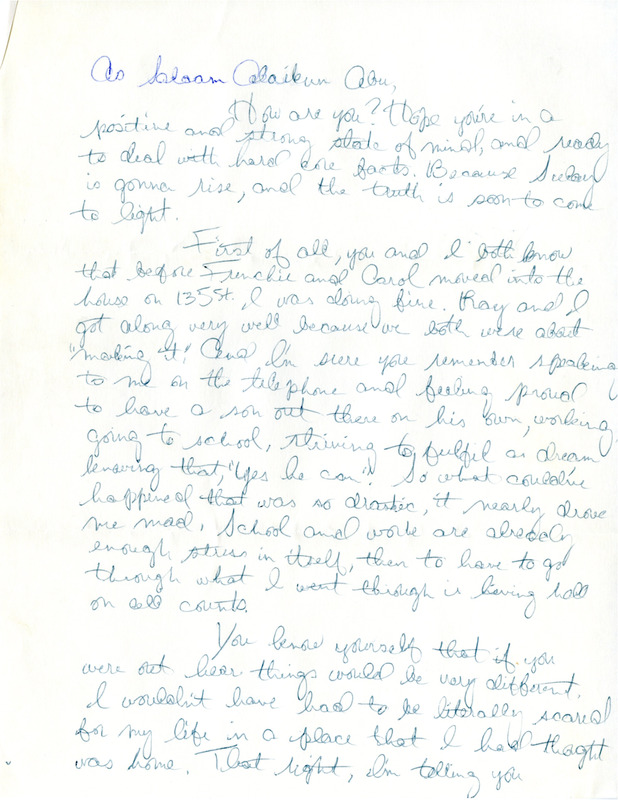 As Salaam Alaikum Abu,
How are you? Hope you're in a
positive and strong state of mind, and ready
to deal with hard core facts. Because
is gonna rise, and the truth is soon to come
to light.
First of all, you and I both know
that before Frenchie and Carol moved into the
house on 135 St. I was doing fine. Ray and I
got along very well because we both were about
"making it". And I'm sure you remember speaking
to me on the telephone and feeling proud
to have a son out there on his own, working,
going to school, striving to fulfil a dream
knowing that, "Yes he can". So what could've
happened that was so drastic, it nearly drove
me mad. School and work are already
enough stress in itself, then to have to go
through what I went through is living hell
on all counts.
You know yourself that if you
were out hear things would be very different.
I wouldn't have had to be literally scared
for my life in a place that I had thought
was home. That right, I'm telling you